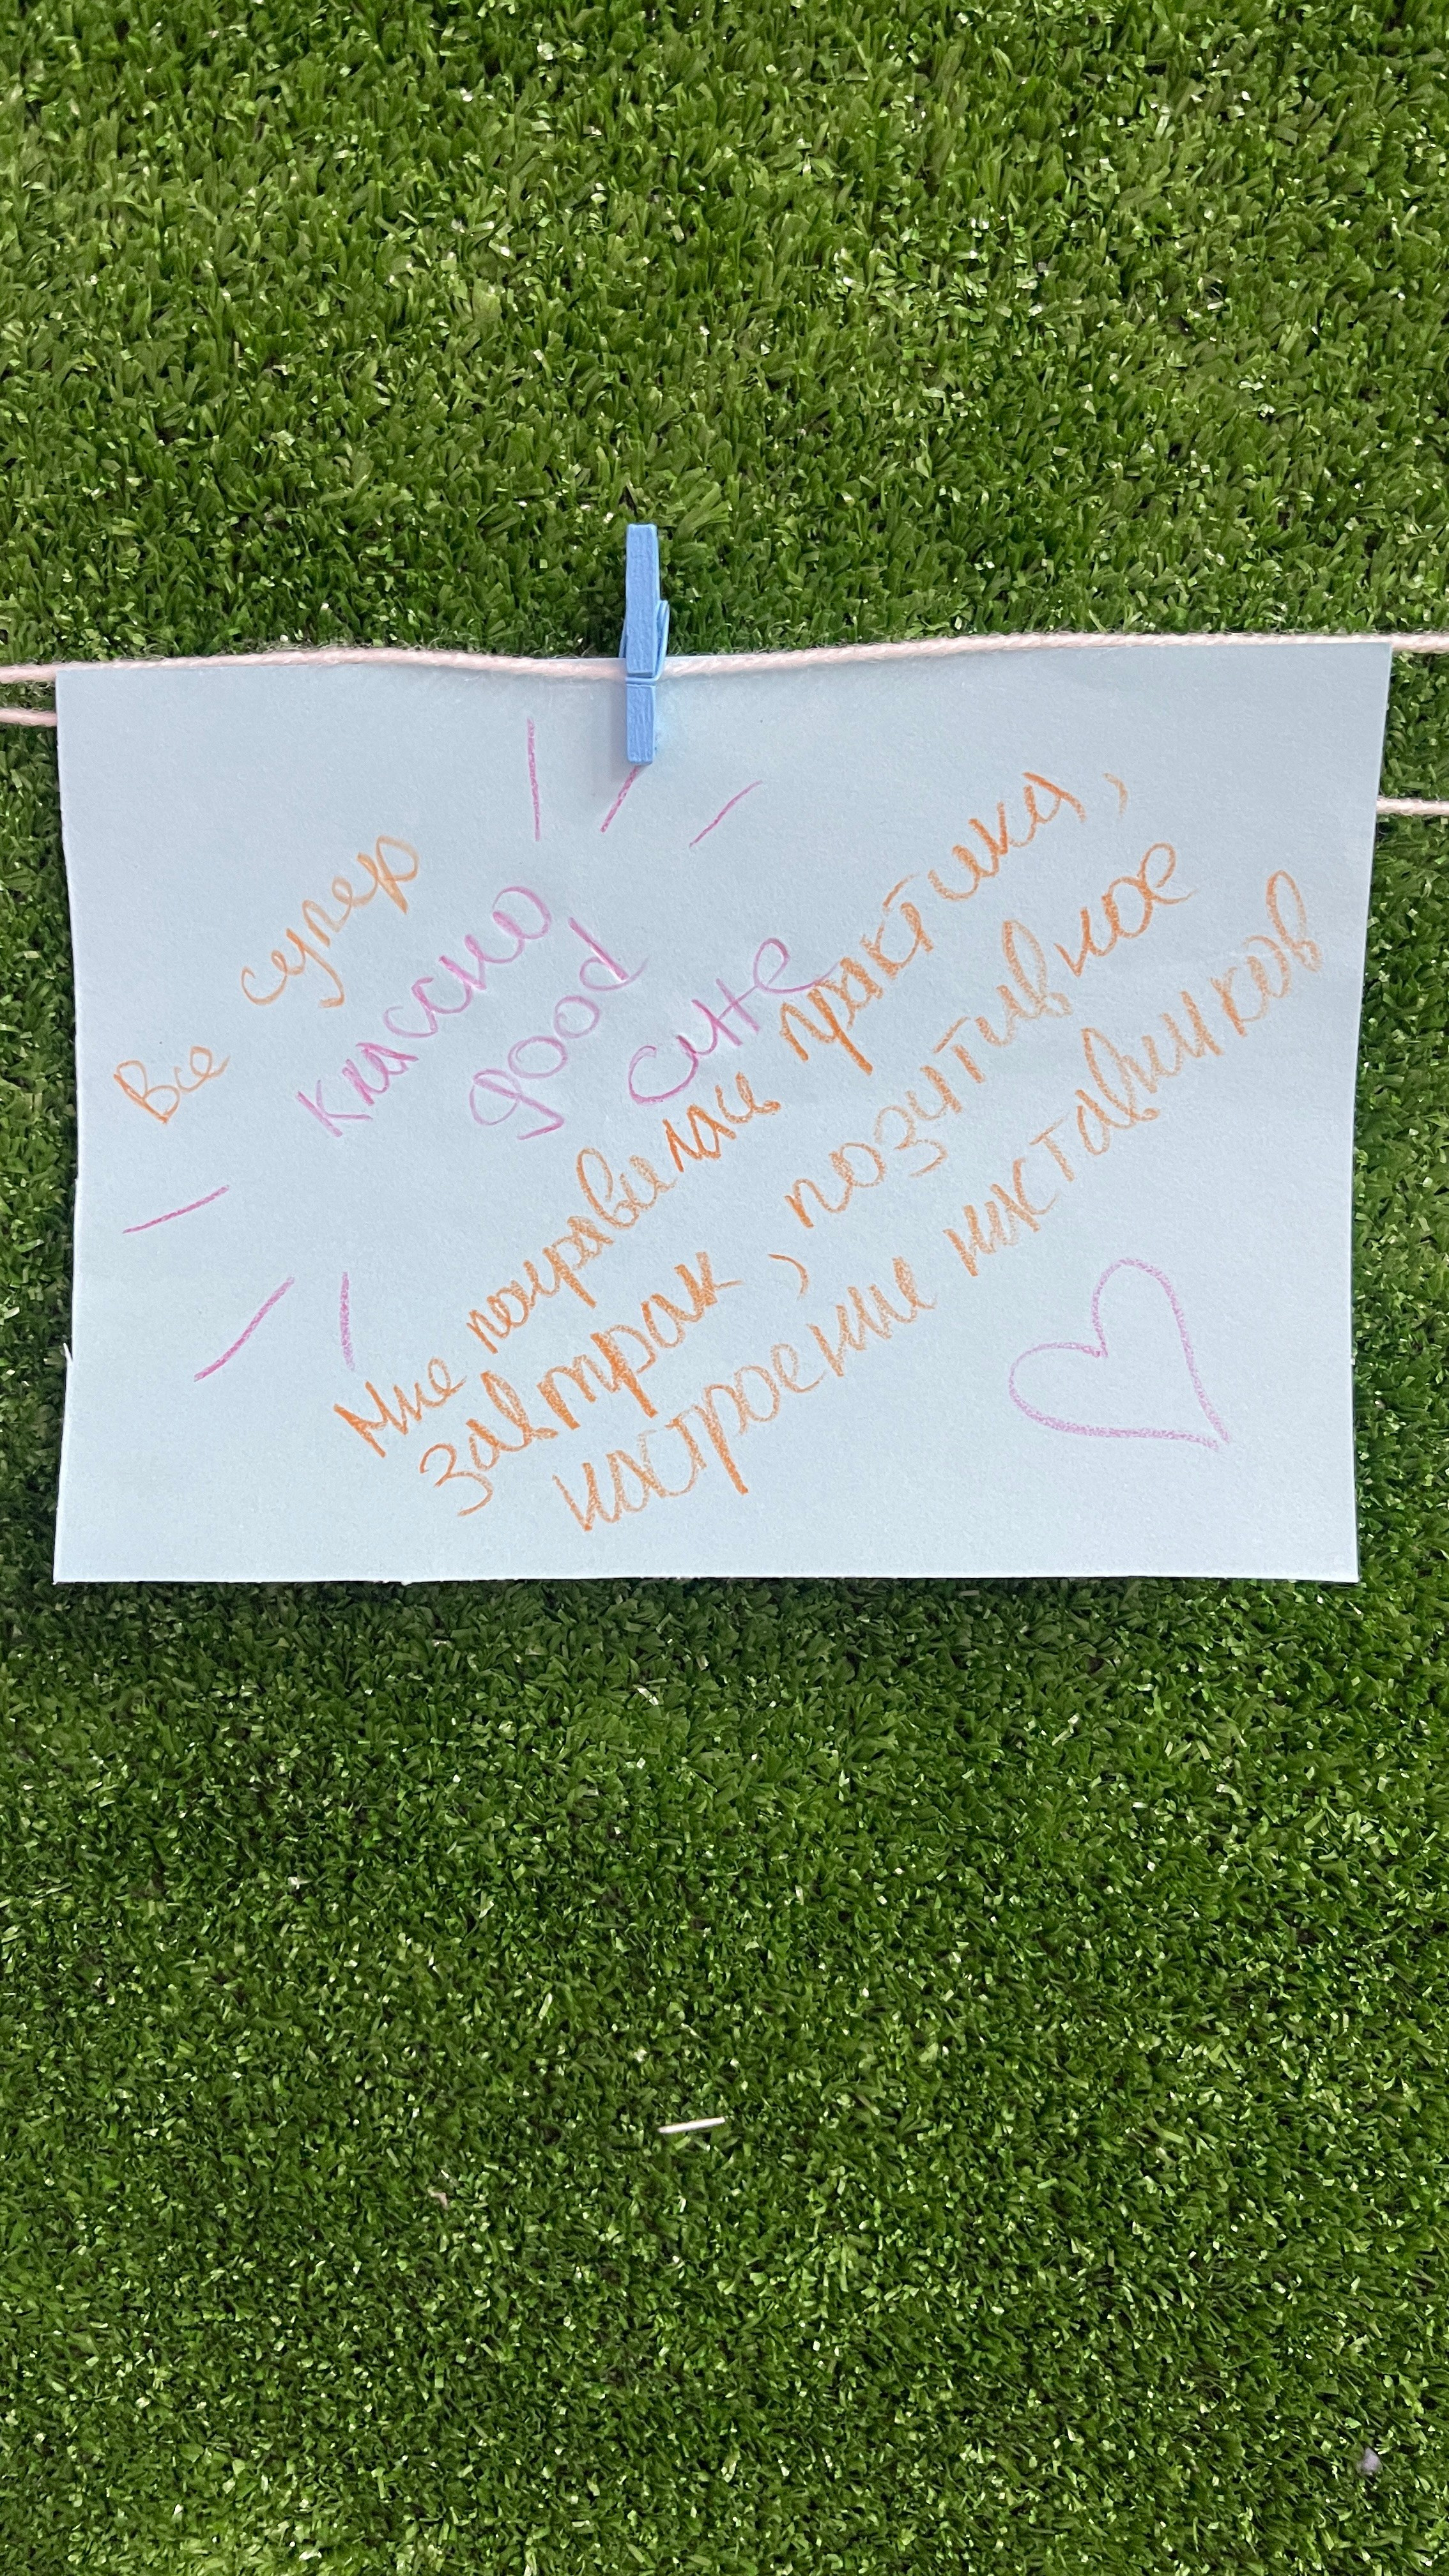 Все супер
классно
good
Мне понравилась практика,
завтрак, позитивное
настроение наставников